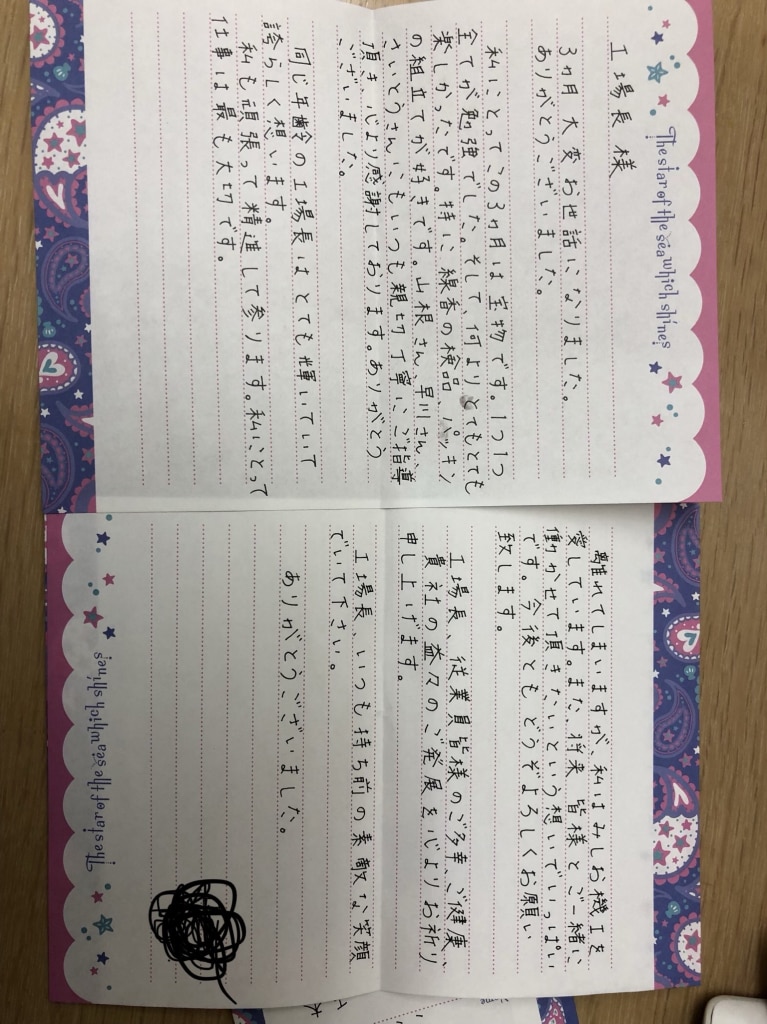 The star of the sea which shines
工場長 様
3ヵ月 大変お世話になりました。
ありがとうございました。
私にとってこの3ヶ月は宝物です。1つ1つ
全てが勉強でした。そして、何よりとてもとても
楽しかったです。特に線香の検品、パッキン
の組立てが好きです。山根さん、早川さん、
さいとうさんにもいつも親切丁寧にご指導
頂き、心より感謝しております。ありがとう
ございました。
同じ年齢の工場長はとても輝いていて
誇らしく想います。
私も頑張って精進して参ります。私にとって
仕事は最も大切です。
離れてしまいますが、私はみしお機工を
愛しています。また、将来 皆様とご一緒に
働かせて頂きたいという想いでいっぱい
です。今後ともどうぞよろしくお願い
致します。
工場長、従業員皆様のご多幸、ご健康、
貴社の益々のご発展を心よりお祈り
申し上げます。
工場長、いつも持ち前の素敵な笑顔
でいて下さい。
ありがとうございました。
The star of the sea which shines